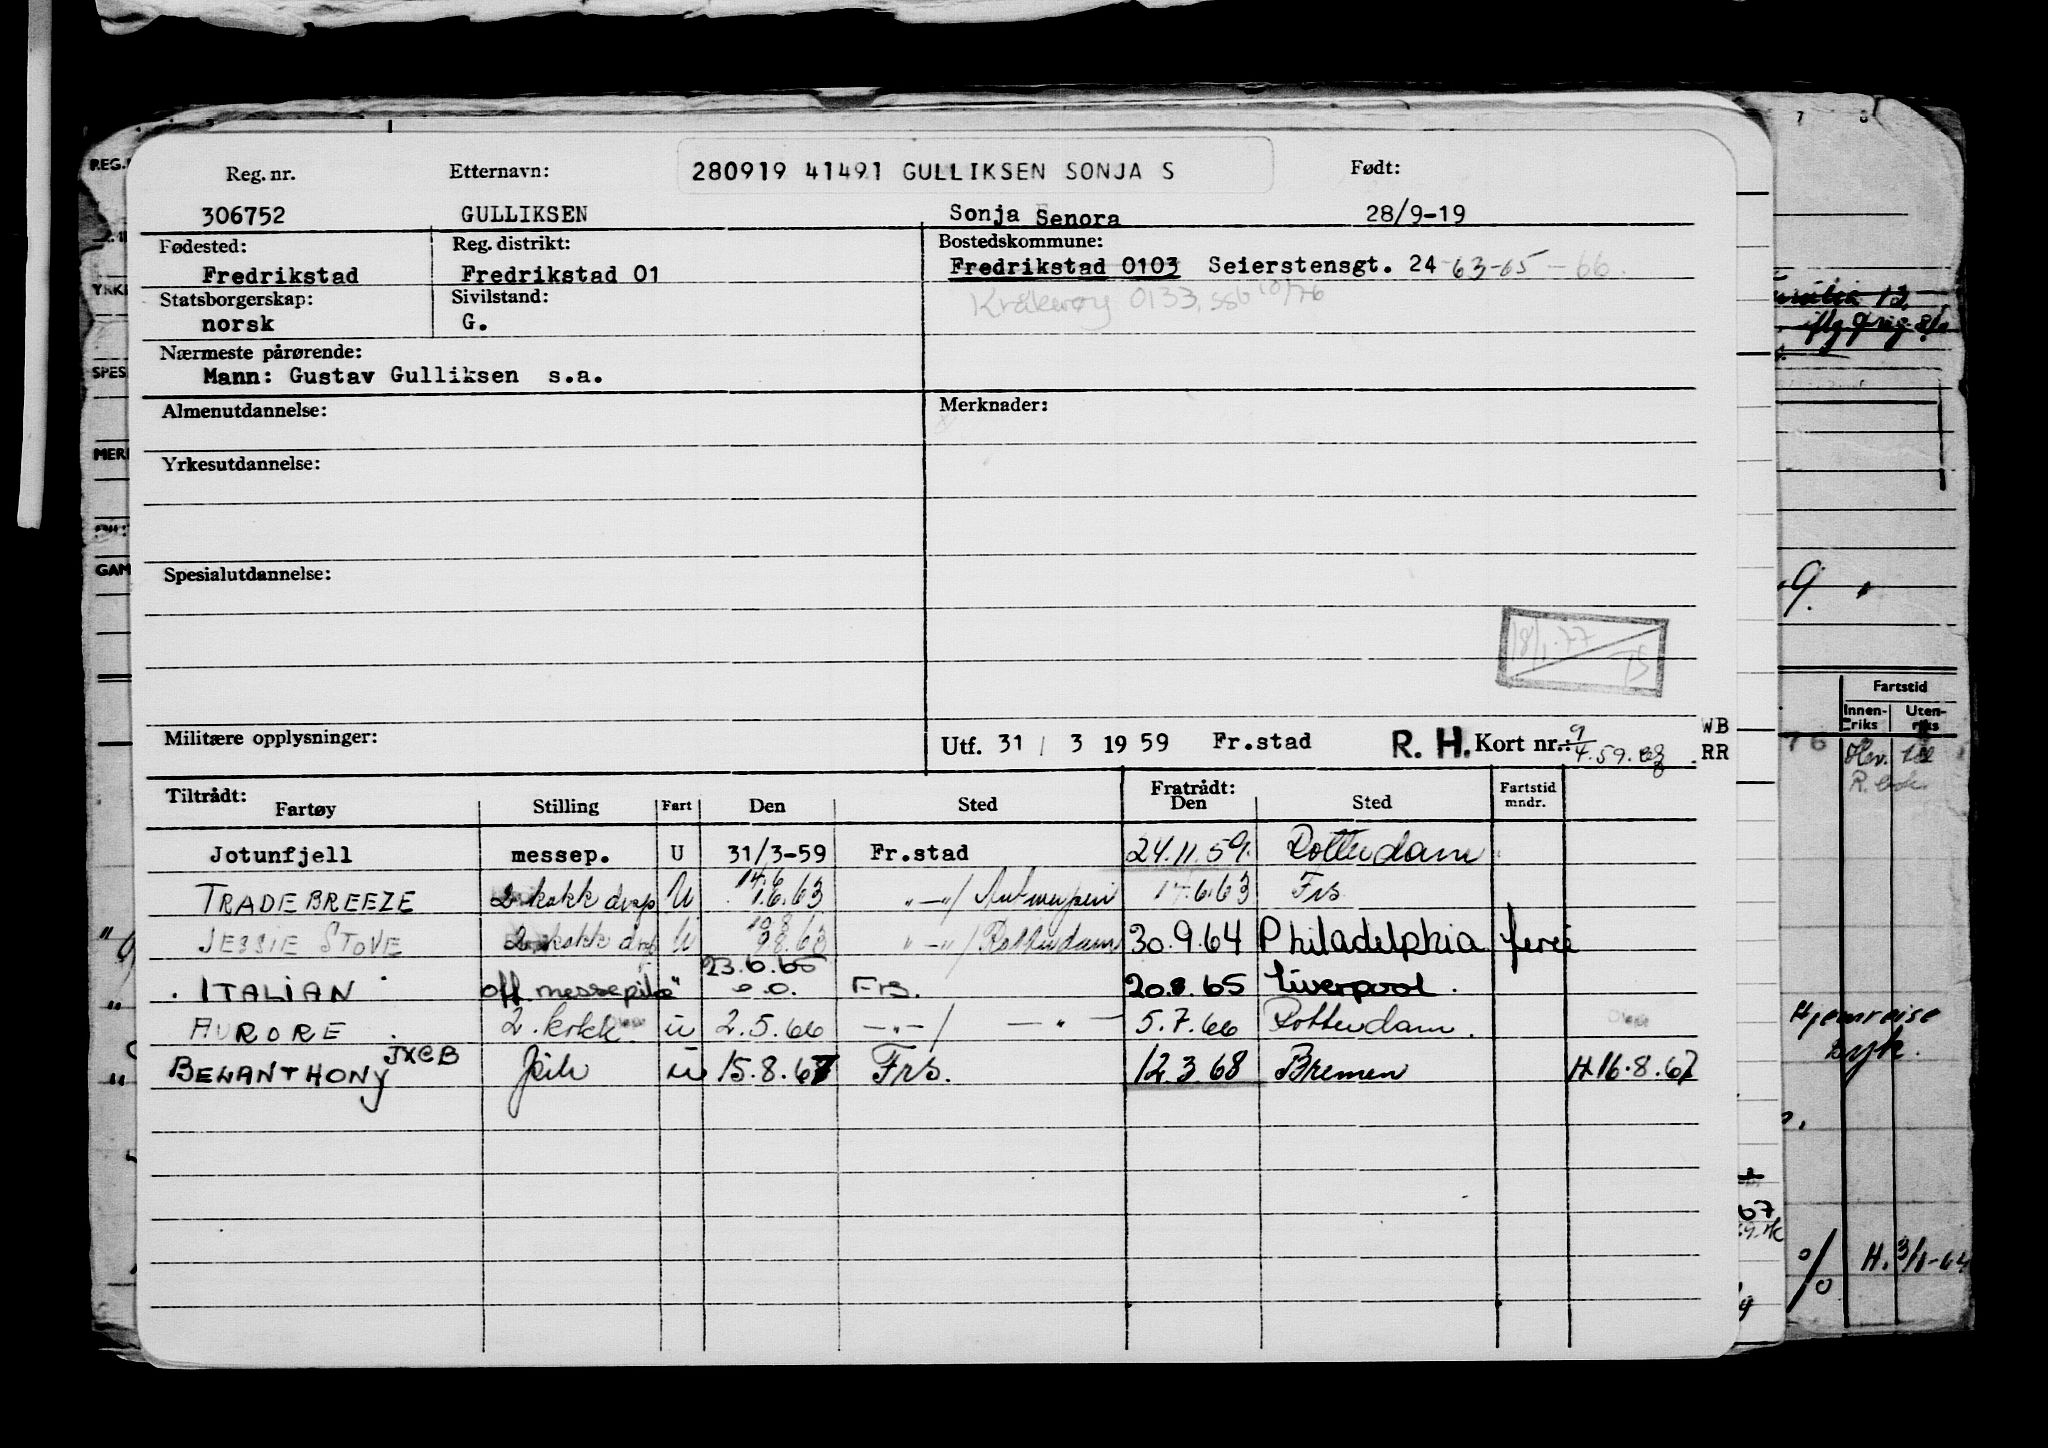 Reg. nr. Etternavn: 280919 41491 GULLIKSEN SONJA S Født:
306752 GULLIKSEN Sonja Senora 28/9-19
Fødested: Reg. distrikt: Bostedskommune:
Fredrikstad Fredrikstad 01 Fredrikstad 0103 Seierstensgt. 24 -63-65-66.
Statsborgerskap: Sivilstand: Kråkerøy 0133, ssb 10/76
norsk G.
Nærmeste pårørende:
Mann: Gustav Gulliksen s.a.
Almenutdannelse: Merknader:
Yrkesutdannelse:
Spesialutdannelse:
18/1.77
Militære opplysninger: Utf. 31 / 3 1959 Fr.stad R. H. Kort nr.: 9/4.59. WB
RR
Tiltrådt: Fratrådt:
Fartøy Stilling Fart Den Sted Den Sted Fartstid mndr.
Jotunfjell messep. U 31/3-59 Fr.stad 24.11.59. Rotterdam
TRADEBREEZE 2 kokk U 14.6 1.6.63 "-"/ Antwerpen 6.63 Frs
JESSIE STOVE 2 kokk U 10.8 63 "-"/ Rotterdam 30.9.64 Philadelphia ferie
ITALIAN off. messepike " 23.6.65 Frs. 20.8.65 Liverpool.
AURORE 2. kokk ü 2.5.66 -"-/ -"- 5.7.66 Rotterdam.
BELANTHONY JXCB ü 15.8.67 Frs. 12.3.68 Bremen H.16.8.67
REG.
YRK
SPES
MER
GAM
7 8
9. "
Fartstid
Innen- Uten-
riks riks
76
Hjemreise
H. 3/1-64